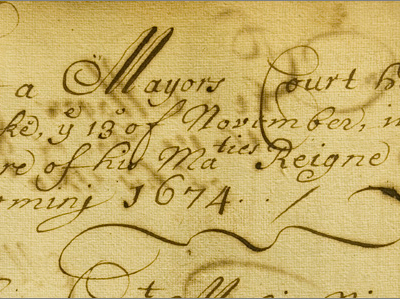 a Mayors Court h
ke, yᵉ 13° of November, in
re of his Maᵗⁱᵉˢ Reigne
omini 1674.